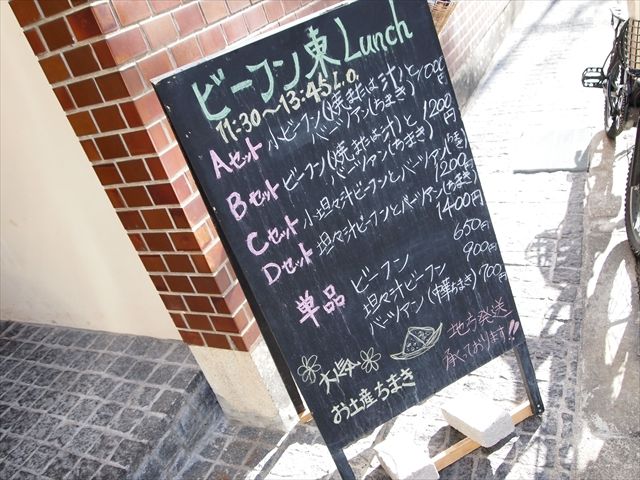 ビーフン東 Lunch
11:30〜13:45 L.o.
Aセット 小ビーフン(焼または汁)と 1000円
バーツアン(ちまき)
Bセット ビーフン(焼または汁)と 1200円
バーツアン(ちまき)
Cセット 小坦々汁ビーフンとバーツアン(ちまき) 1200円
Dセット 坦々汁ビーフンとバーツアン(ちまき) 1400円
単品 ビーフン 650円
坦々汁ビーフン 900円
バーツアン(中華ちまき) 700円
お土産ちまき
地方発送
承っております!!